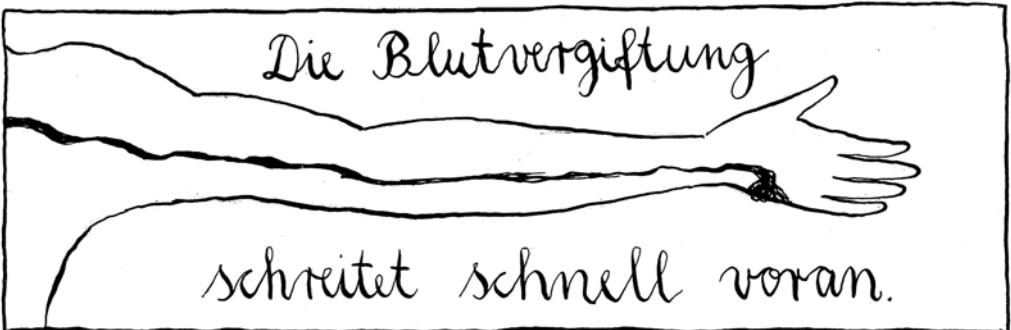 Die Blutvergiftung
schreitet schnell voran.